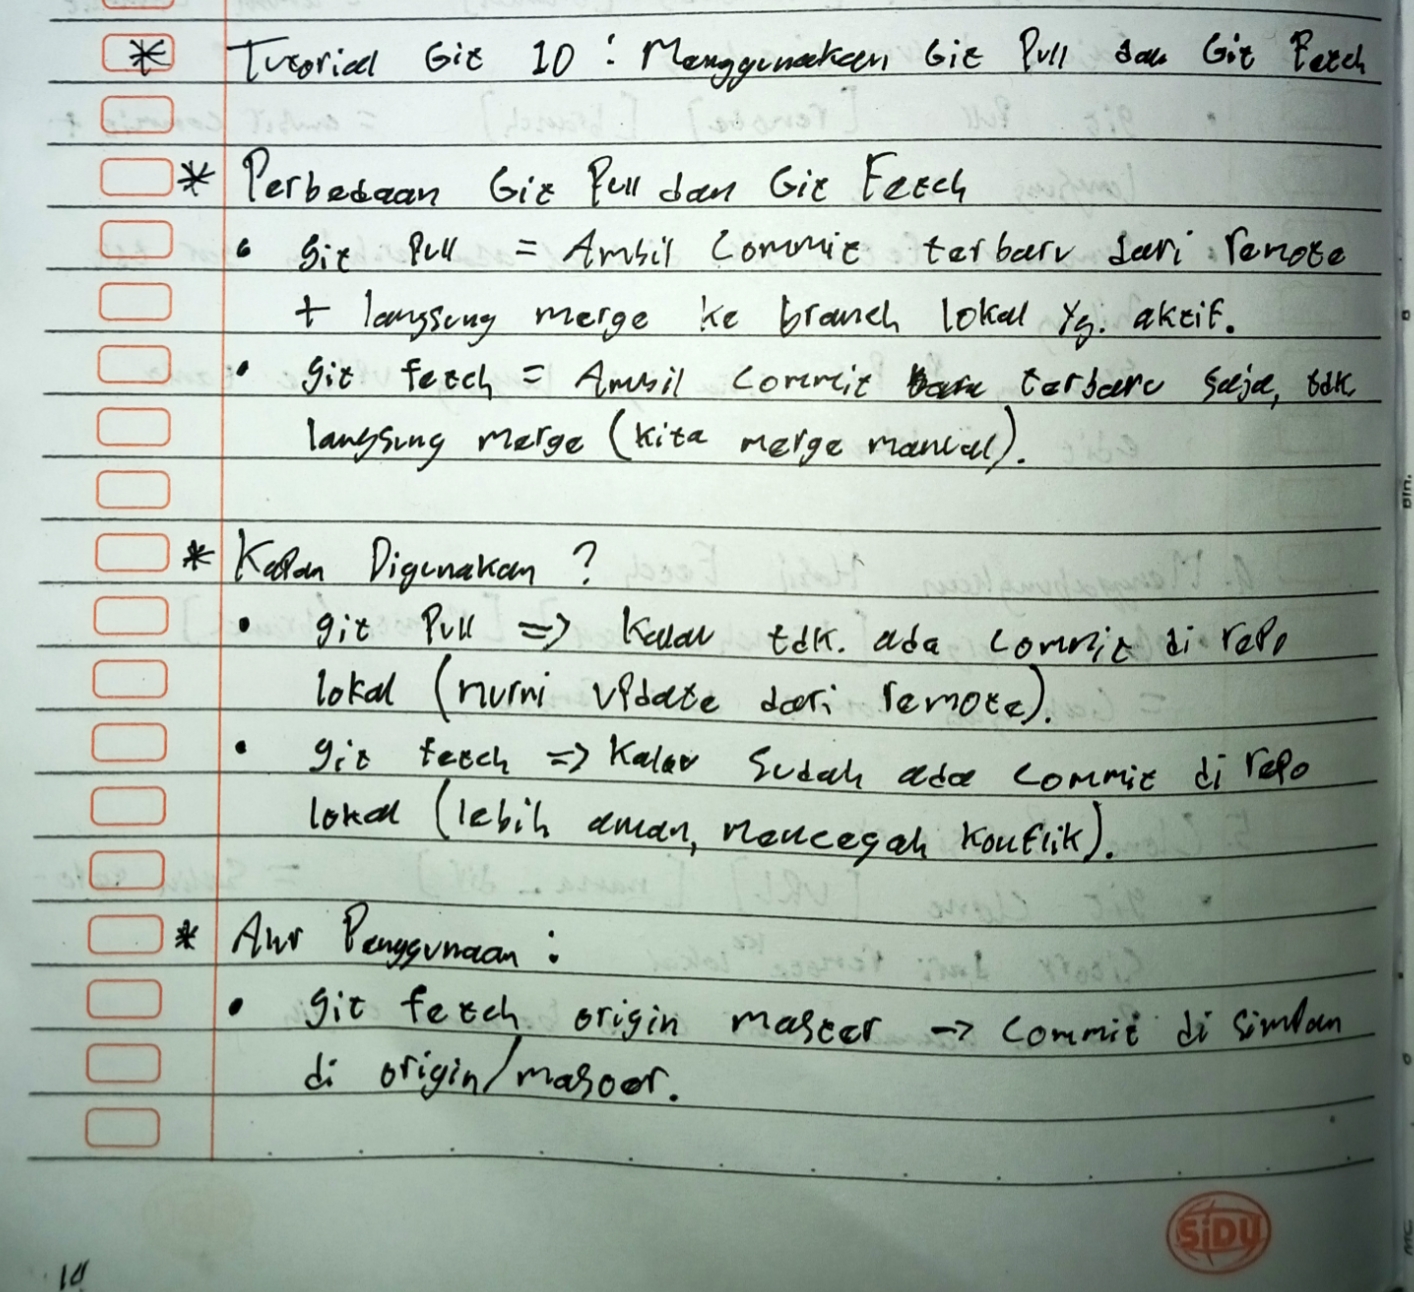 * Tutorial Git 10 : Menggunakan Git Pull dan Git Fetch
* Perbedaan Git Pull dan Git Fetch
• git Pull = Ambil Commit terbaru dari remote
+ langsung merge ke branch lokal yg. aktif.
• git fetch = Ambil commit terbaru saja, tdk
langsung merge (kita merge manual).
* Kapan Digunakan ?
• git Pull => Kalau tdk. ada commit di repo
lokal (murni update dari remote).
• git fetch => Kalau Sudah ada commit di repo
lokal (lebih aman, mencegah konflik).
* Alur Penggunaan :
• git fetch origin master -> commit di simpan
di origin/master.
SiDU